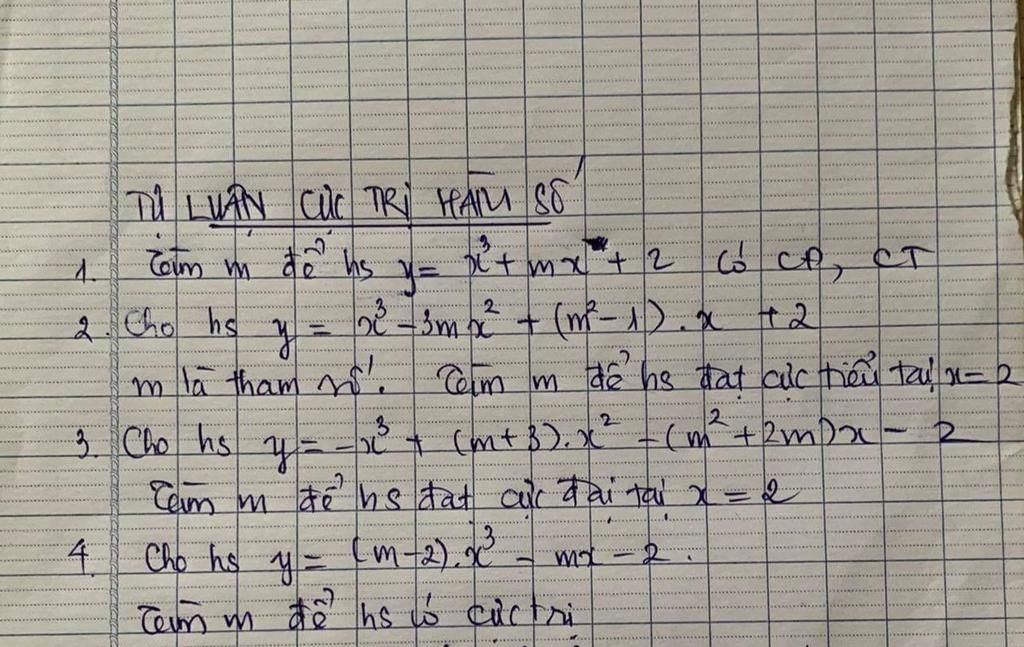 TỰ LUẬN CỰC TRỊ HÀM SỐ
1. Tìm m để hs y = x³ + mx + 2 có CĐ, CT
2. Cho hs y = x³ - 3mx² + (m² - 1).x + 2
m là tham số. Tìm m để hs đạt cực tiểu tại x = 2
3. Cho hs y = -x³ + (m+3).x² - (m² + 2m)x - 2
Tìm m để hs đạt cực đại tại x = 2
4. Cho hs y = (m-2).x³ - mx - 2.
Tìm m để hs có cực trị